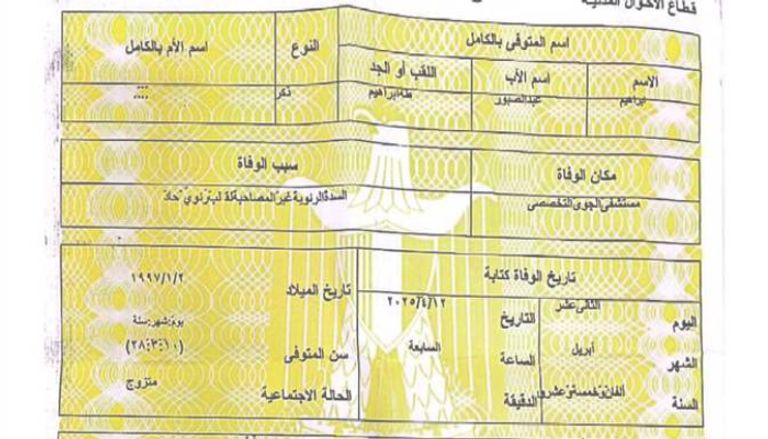 قطاع الأحوال المدنية
اسم المتوفى بالكامل
النوع
اسم الأم بالكامل
الاسم
اسم الأب
اللقب أو الجد
ابراهيم
عبدالصبور
طه ابراهيم
ذكر
::::
مكان الوفاة
سبب الوفاة
مستشفى الجوى التخصصى
السدة الرئوية غير المصاحبة لقلب رئوي حاد
تاريخ الوفاة كتابة
تاريخ الميلاد
١٩٩٧/١/٢
اليوم
الثانى عشر
التاريخ
٢٠٢٥/٤/١٢
يوم:شهر:سنة
الشهر
أبريل
الساعة
السابعة
سن المتوفى
(٢٨:٣:١٠)
السنة
ألفان وخمسة وعشرون
الدقيقة
الحالة الاجتماعية
متزوج